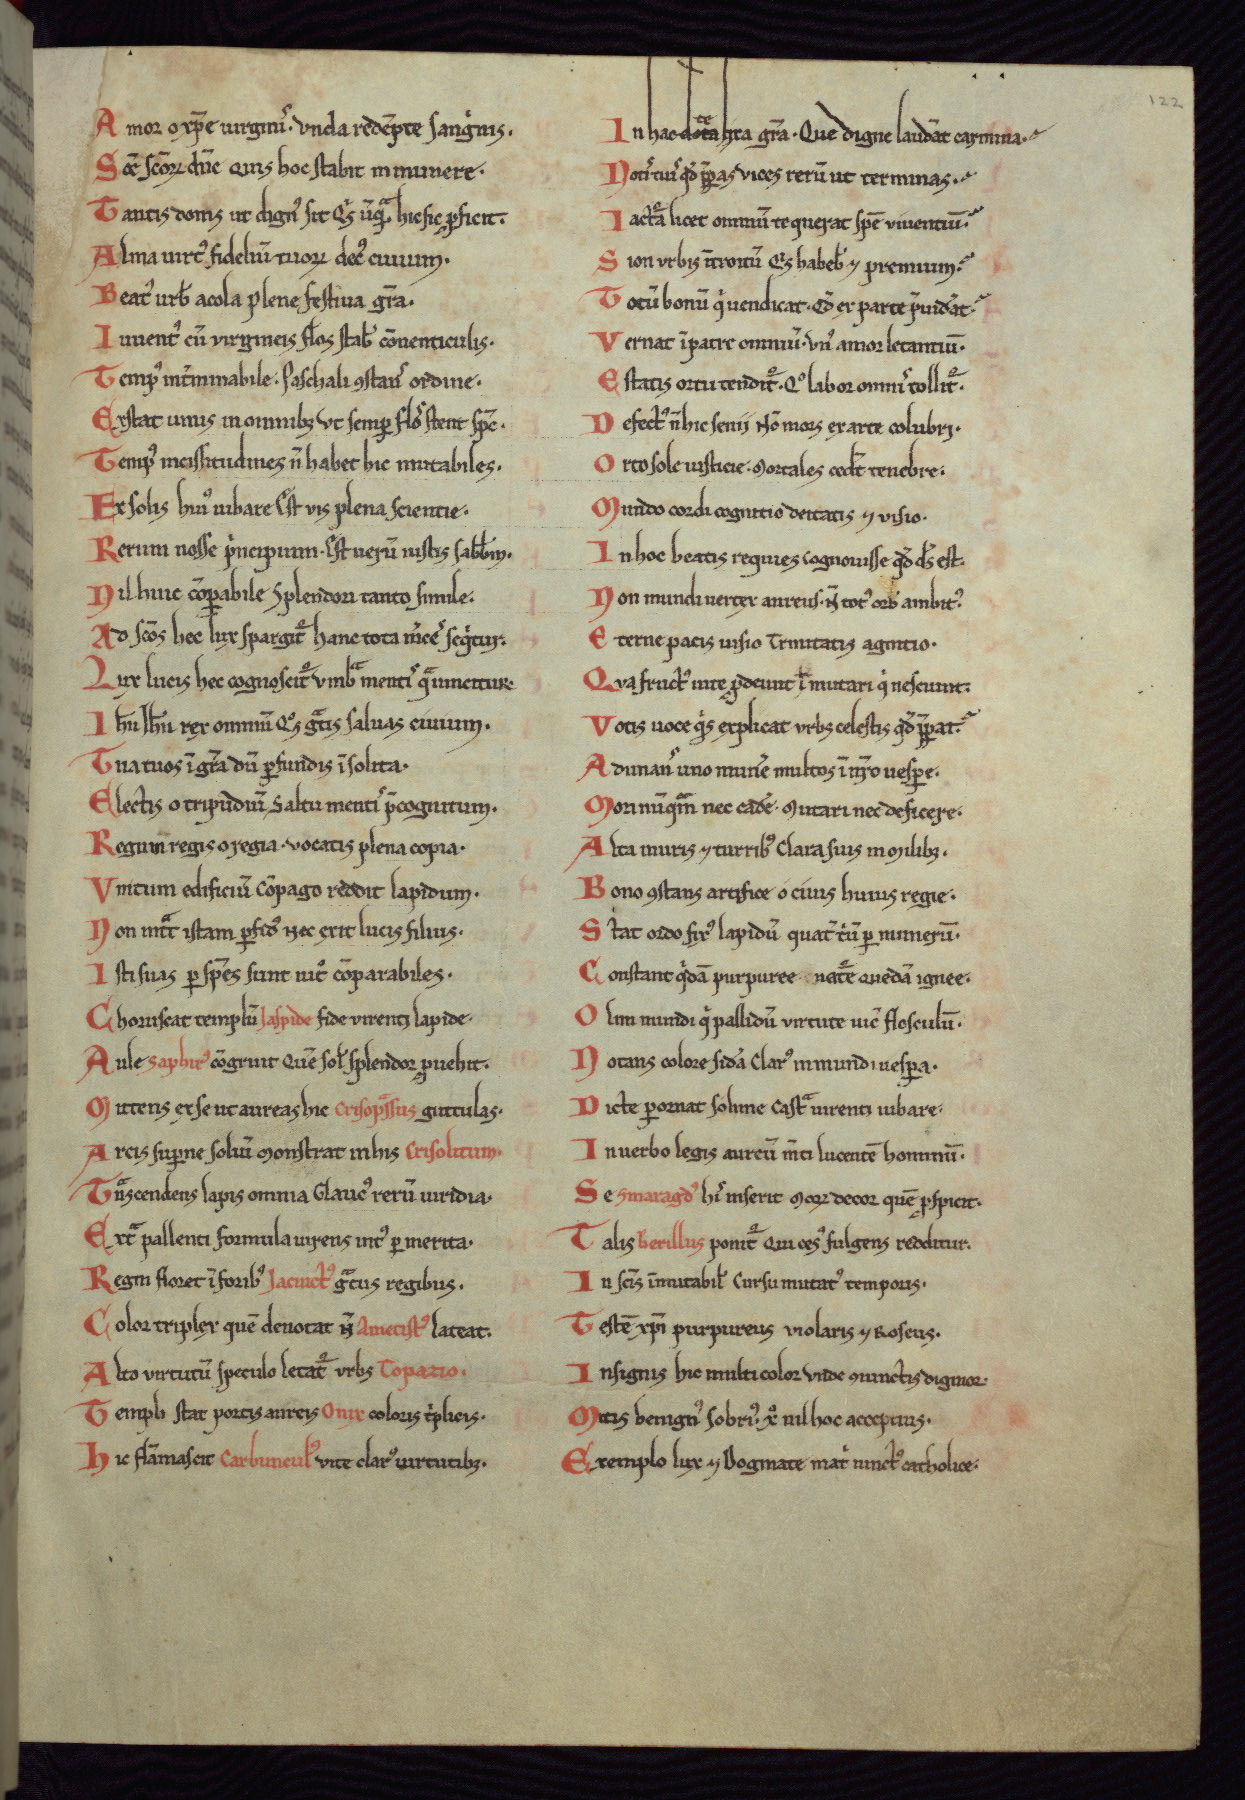 122
Amor o xp̄e uirginū. vnda redēpte sanguinis.
Sc̄e sc̄oꝝ dn̄e quis hoc stabit in munere.
Tantis donis ut dignꝰ sit
Alma uirtꝰ fideliū tuoꝝ decꝰ ciuium.
Beatꝰ urb̄ acola plene festiua gr̄a.
Iuuentꝰ cū virgineis flos stab̄ cōuenticulis.
Tempꝰ int̄minabile. Paschali ꝯstans ordine.
Exstat unus in omnibꝫ vt semꝑ
Tempꝰ uicissitudines n̄ habet hic mutabiles.
Ex solis huiꝰ iubare Est vis plena scientie.
Rerum nosse pͥncipium. Est uerū iustis
Nil huic cōꝑabile Splendori tanto simile.
Ad sc̄os hec lux spargit᷑ hanc tota
Lux lucis hec cognoscit᷑
Ih̄u rex omniū ciuium.
Tua tuos ī gr̄a dū ꝑfundis īsolita.
Electis o tripudiū Saltu mentis p̄cognitum.
Regum regis o regia. vocatis plena copia.
Vnitum edificiū Cōpago reddit lapidum.
Non istam ꝑfidꝰ Nec erit lucis filius.
Isti suas ꝑ sp̄es sunt cōparabiles.
Choruscat templū Iaspide fide virenti lapide.
Aule Saphirꝰ cōgruit Quē sol splendor ꝓuehit.
Mittens ex se ut aureas hic Crisopᵃssus guttulas.
Arcis suꝑne solū monstrat in his Crisolitum.
Tᵃnscendens lapis omnia Glaucꝰ rerū uiridia.
Extᵃ pallenti formula virens intꝰ ꝑ merita.
Regni floret ī foribꝰ Iacinctꝰ gᵃtus regibus.
Color triplex quē denotat n̄ Ametistꝰ lateat.
Alto virtutū speculo letat᷑ vrbs Topatio.
Templi stat portis aureis Onix coloris tͥplicis.
Hic flāmascit Carbunculꝰ vite clarꝰ uirtutibꝫ.
In hac gr̄a. Que digne laudāt carmina.
vices rerū ut terminas.
Iactᵃ licet omniū te querat spē viventiū.
Sion vrbis ītroitū habeb̄ ⁊ premium.
Totū bonū qͥ uendicat. Qd̄ ex parte
Vernat ī patre omniū. vnꝰ amor letantiū.
Estatis ortu tendit᷑. Qͦ labor omnis tollit᷑.
Defectꝰ n̄ hic senii Nō mors ex arte colubri.
Orto sole iusticie. Mortales cedūt tenebre.
Mundo cordi cognitio deitatis ⁊ visio.
In hoc beatis requies Cognouisse qd̄ ds̄ est.
Non mundi uertex aureus. n̄ totꝰ orb̄ ambitꝰ.
Eterne pacis uisio Trinitatis agnitio.
Qua fructꝰ uite ꝓdeunt mutari qͥ nesciunt.
Votis uoce qͥs explicat vrbs celestis
Adunans uno munē multos ī nr̄o uesꝑe.
Mori nūqͣm nec cadē. Mutari nec deficere.
Alta muris ⁊ turribꝰ Clara suis in Milibꝫ.
Bono ꝯstans artifice o ciuis huius regie.
Stat ordo fixꝰ lapidū quat̄ ꝑ numerū.
Constant qͥdā purpuree quedā ignee.
Olim mundi qͥ pallidū virtute uicit flosculū.
Notans colore Clarꝰ in mundi uesꝑa.
Dicte ꝑornat solime Castᵃ uirenti iubare.
In uerbo legis aureū lucentē hominū.
Se Smaragdꝰ inserit decor quē ꝓspicit.
Talis berillus ponit᷑ Qui fulgens redditur.
In sc̄is īmutabil̄ Cursu mutatꝰ temporis.
Testē xp̄i purpureus violaris ⁊ Roseus.
Insignis hic multicolor vnde cunctis dignior.
Mitis benignꝰ sobriꝰ. nil hoc acceptius.
Exemplo lux ⁊ Dogmate cunctꝰ catholice.